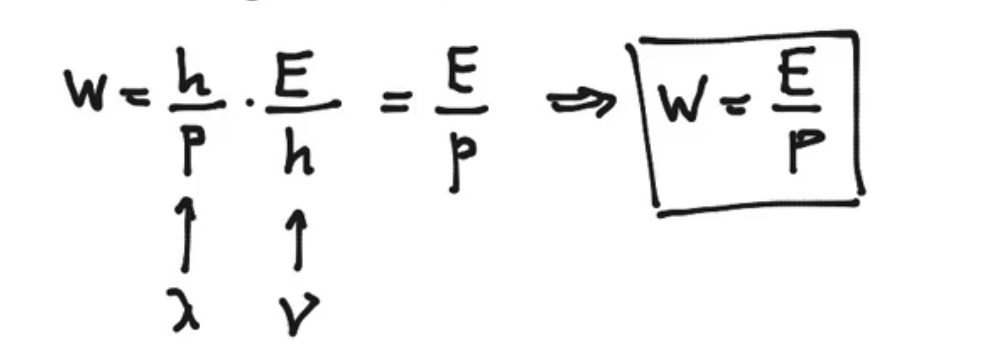 W = h/p · E/h = E/p ⇒ W = E/p
↑ ↑
λ ν